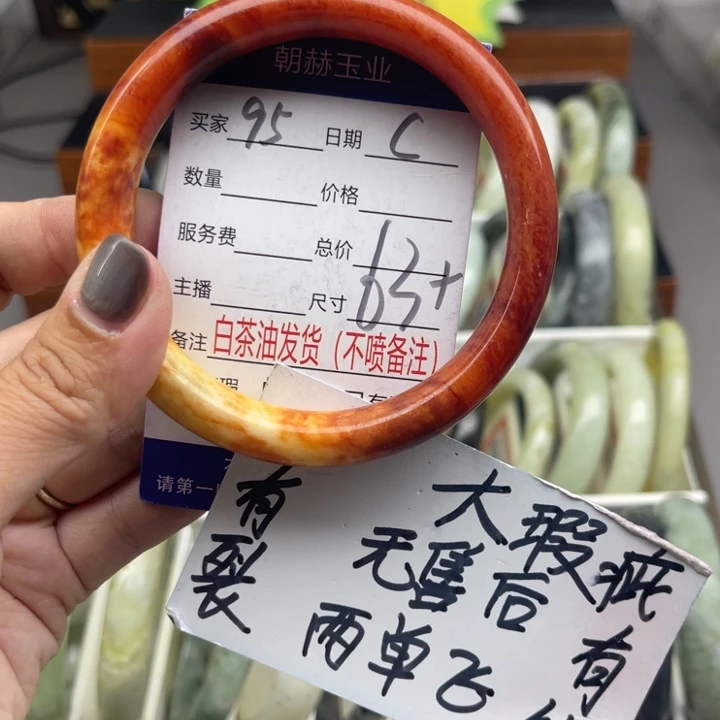 朝赫玉业
买家 95 日期 C
数量 价格
服务费 总价
主播 尺寸 63+
备注 白茶油发货（不喷备注）
请第一
有裂
大瑕疵
无售后 有
两单飞